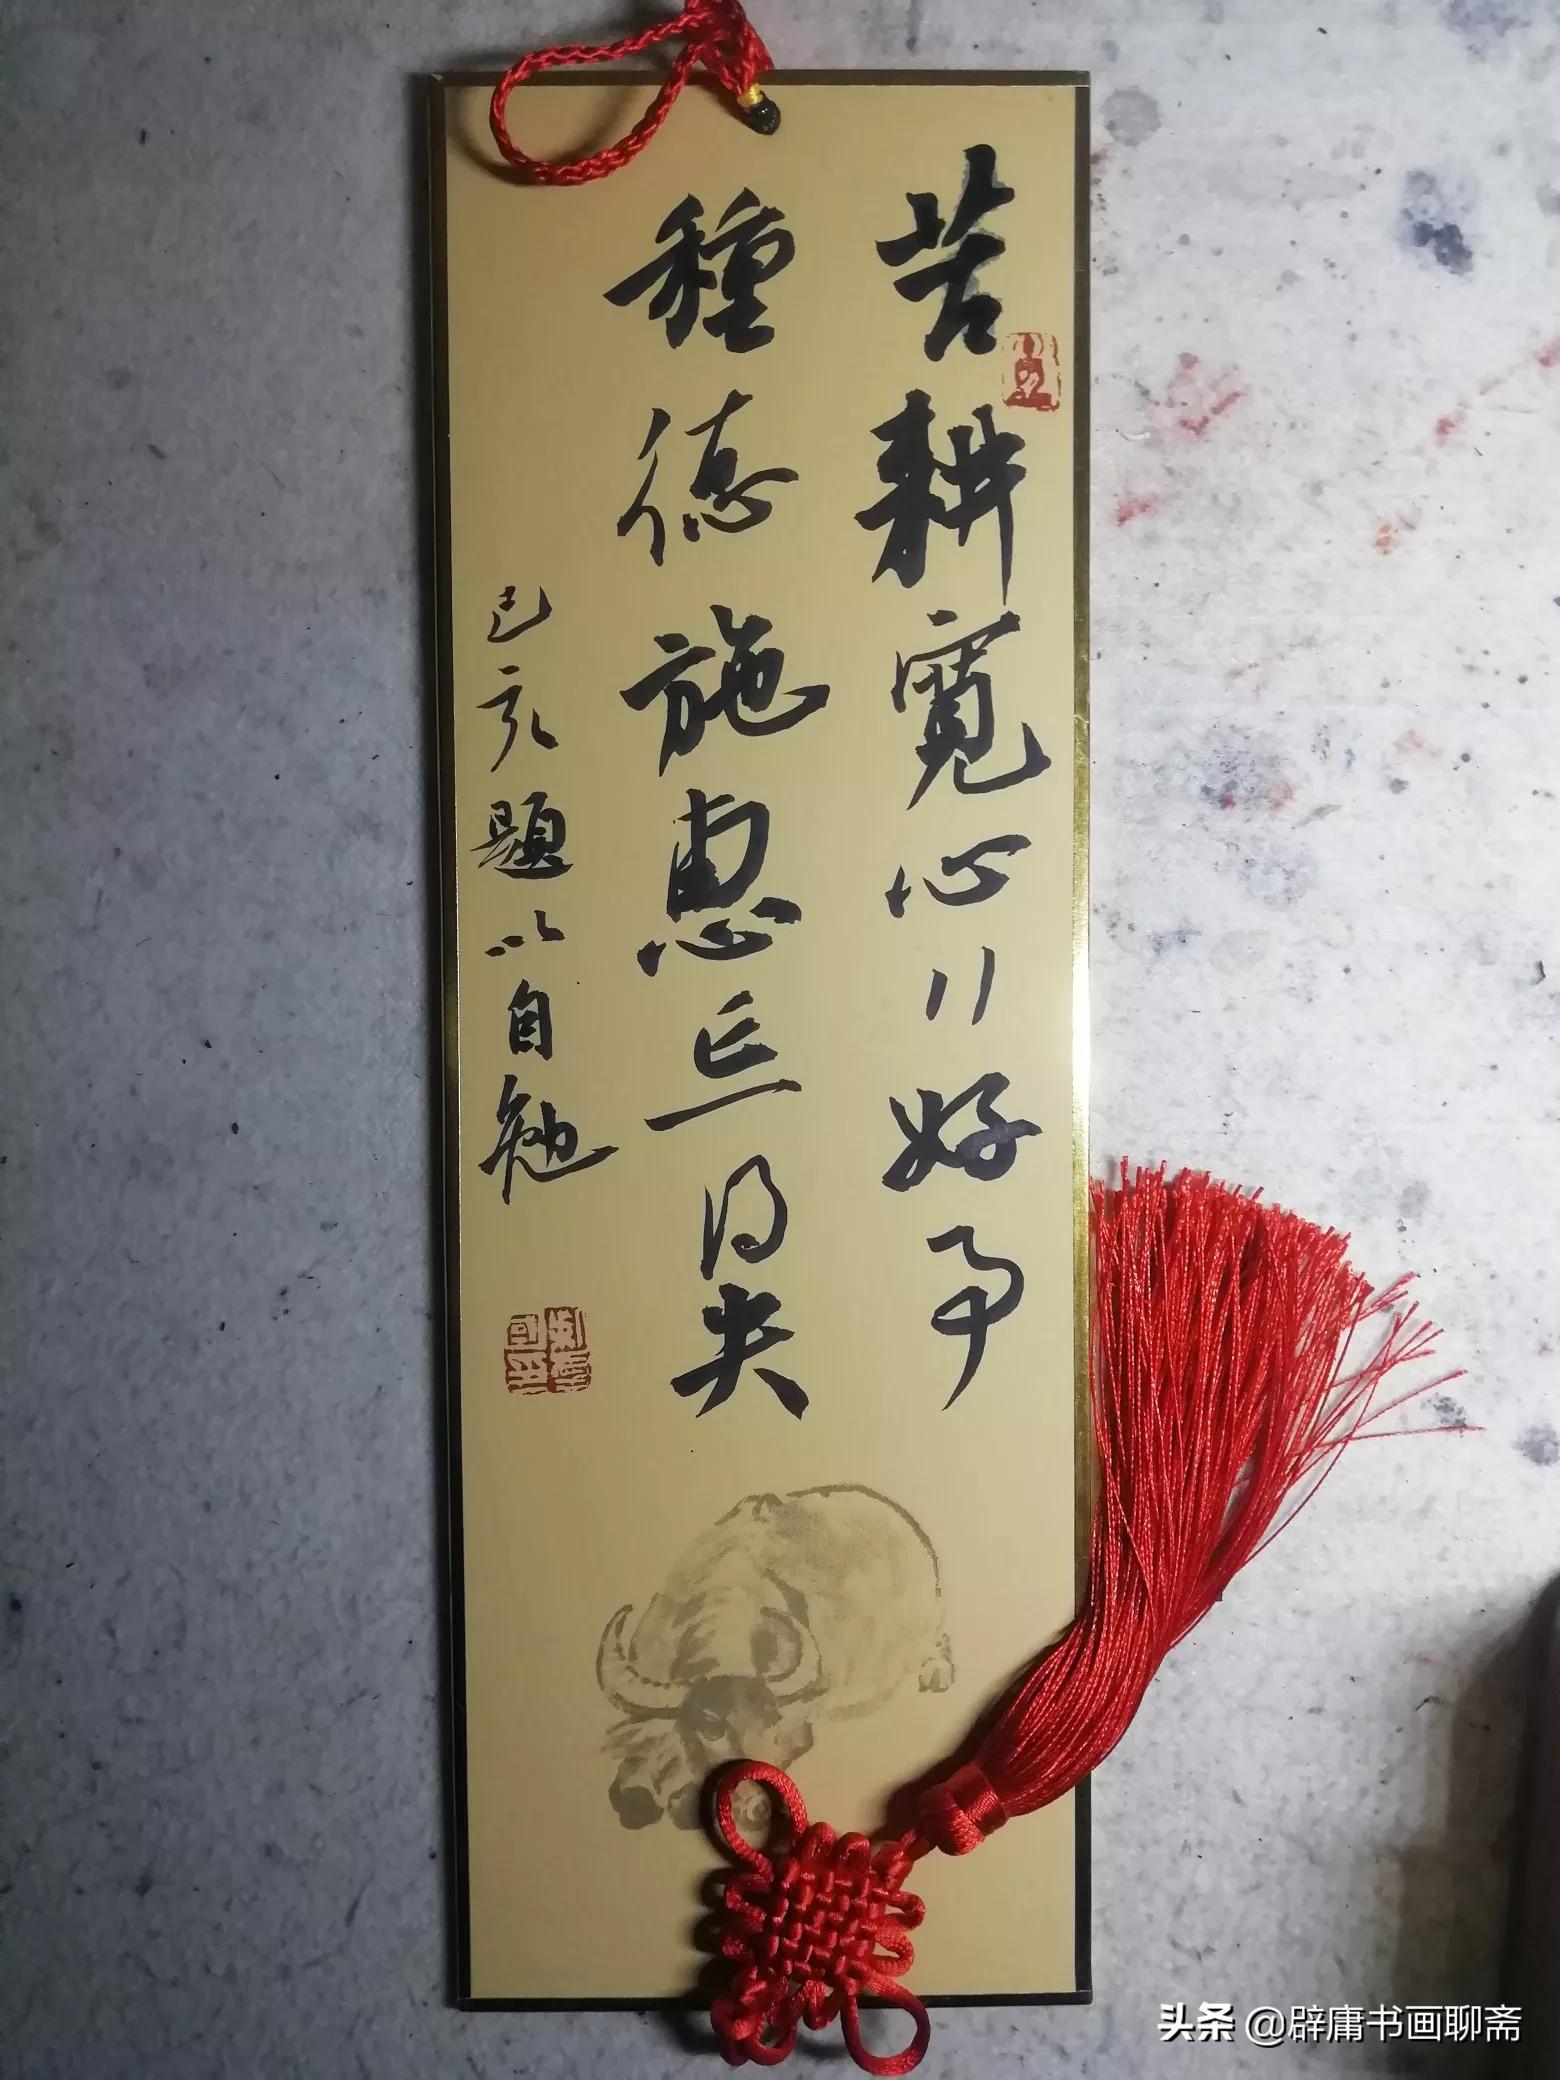 苦耕寬心好争
種德施惠忘得失
己亥題以自勉
头条 @辟庸书画聊斋